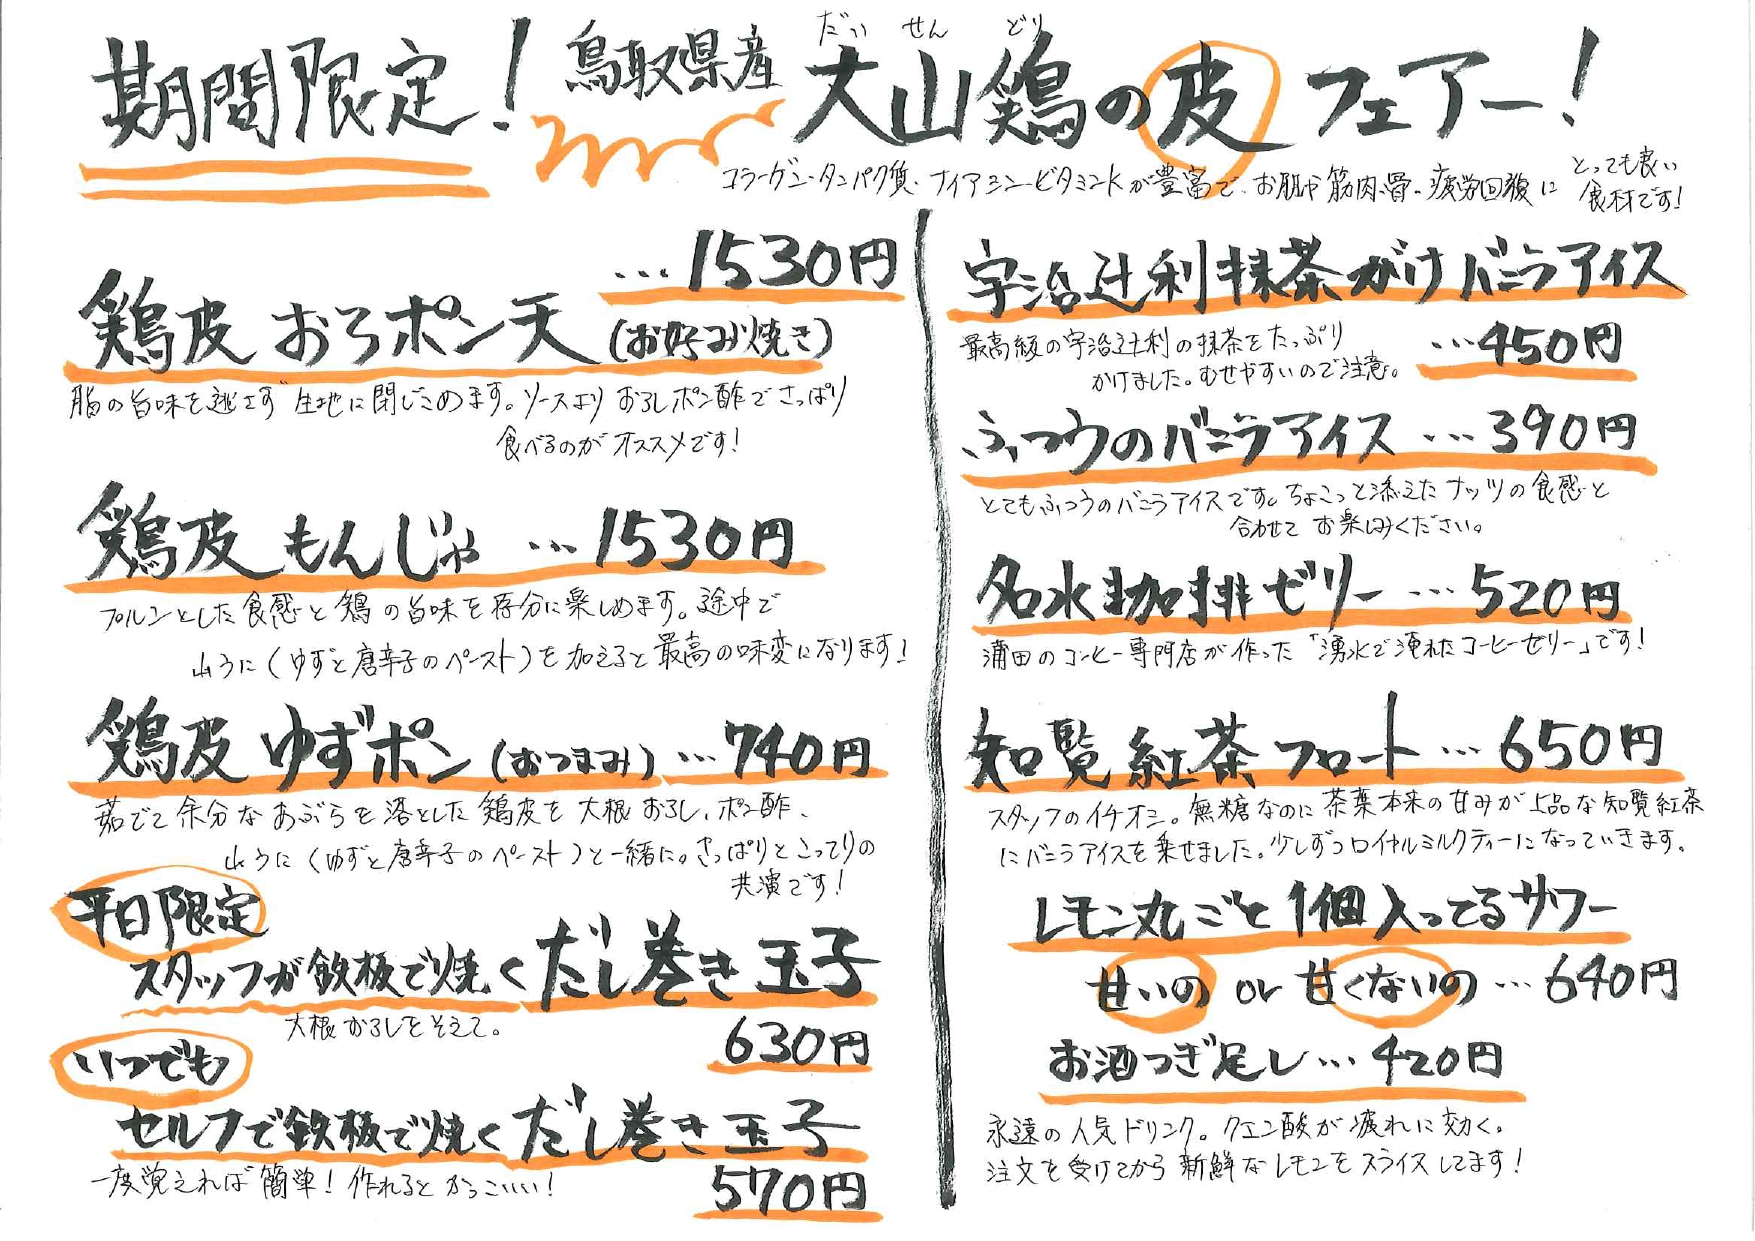 期間限定！ 鳥取県産 大山鶏の皮フェアー！
だいせんどり
コラーゲン・タンパク質・ナイアシン・ビタミンKが豊富で、お肌や筋肉、骨、疲労回復に とっても良い
食材です！
…1530円
鶏皮 おろポン天 (お好み焼き)
脂の旨味を逃さず生地に閉じこめます。ソースよりおろしポン酢でさっぱり
食べるのがオススメです！
鶏皮 もんじゃ …1530円
プルンとした食感と鶏の旨味を存分に楽しめます。途中で
山うに（ゆずと唐辛子のペースト）を加えると最高の味変になります！
鶏皮 ゆずポン (おつまみ) …740円
茹でて余分なあぶらを落とした鶏皮を大根おろし、ポン酢、
山うに（ゆずと唐辛子のペースト）と一緒に。さっぱりとこってりの
共演です！
平日限定
スタッフが鉄板で焼くだし巻き玉子
大根おろしをそえて。
630円
いつでも
セルフで鉄板で焼くだし巻き玉子
一度覚えれば簡単！作れるとかっこいい！
570円
宇治辻利抹茶がけバニラアイス
最高級の宇治辻利の抹茶をたっぷり
…450円
かけました。むせやすいので注意。
ふつうのバニラアイス …390円
とてもふつうのバニラアイスです。ちょこっと添えたナッツの食感と
合わせてお楽しみください。
名水珈琲ゼリー …520円
蒲田のコーヒー専門店が作った「湧水で淹れたコーヒーゼリー」です！
知覧紅茶フロート …650円
スタッフのイチオシ。無糖なのに茶葉本来の甘みが上品な知覧紅茶
にバニラアイスを乗せました。少しずつロイヤルミルクティーになっていきます。
レモン丸ごと1個入ってるサワー
甘いの or 甘くないの …640円
お酒つぎ足し …420円
永遠の人気ドリンク。クエン酸が疲れに効く。
注文を受けてから新鮮なレモンをスライスしてます！